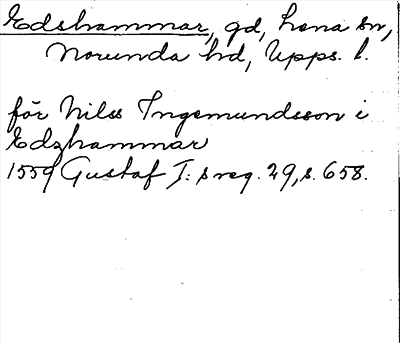 Edshammar, gd, Lena sn,
Norunda hd, Upps. l.
för Nils Ingemundsson i
Edzhammar
1559 Gustaf I: s reg. 29, s. 658.